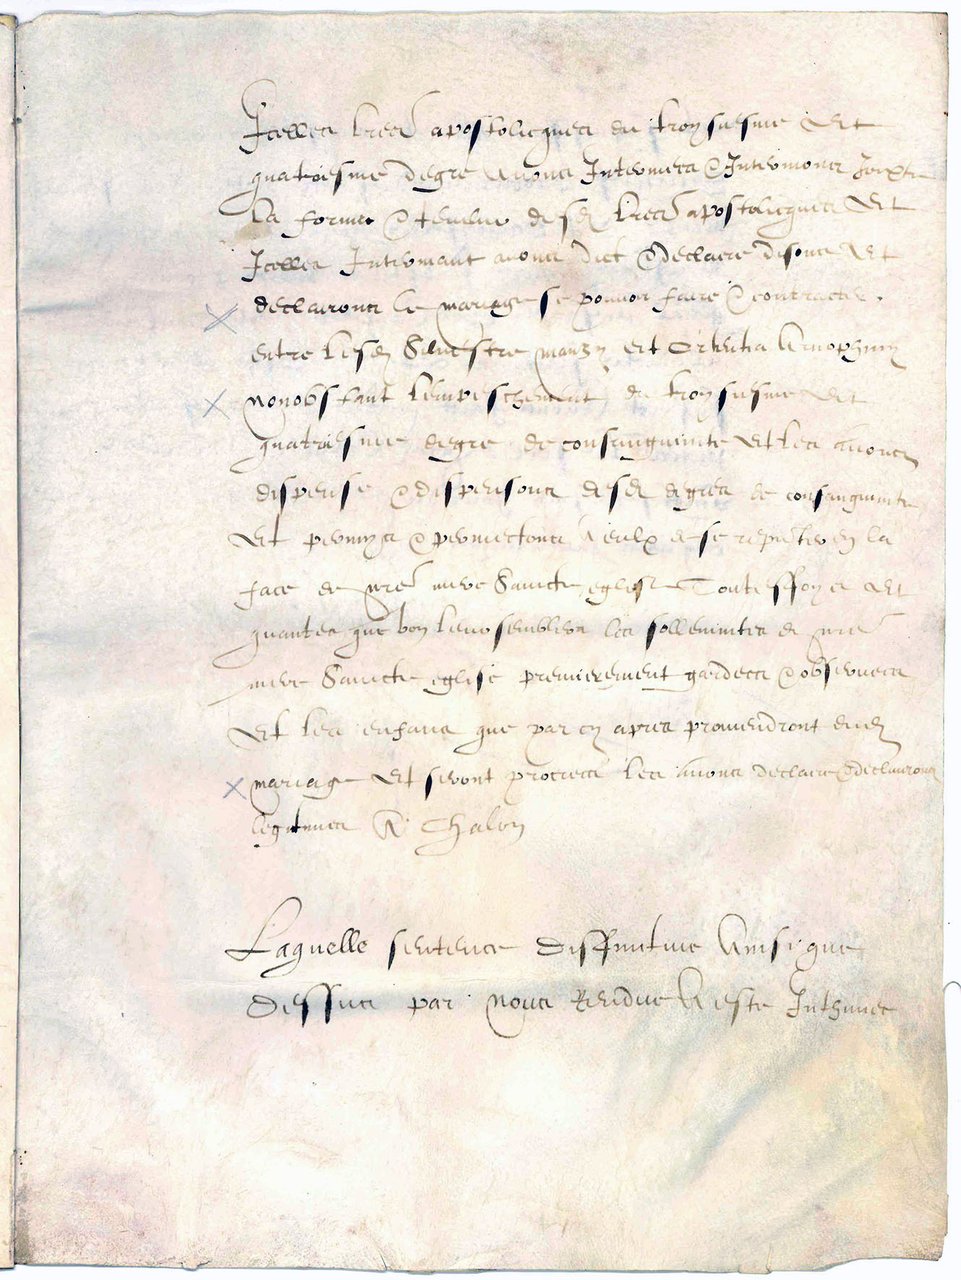 Icelles lres apostolicques du troysiesme Et
quatriesme degre Avons Interinees & Interinons Jouxte
la forme & teneur desd lres apostolicques Et
Icelles Interinant avons dict & declaire disons Et
declairons le mariage se pouvoir faire & contracter
entre lesd Silvestre et
nonobstant lempeschement du troysiesme Et
quatriesme degre de consanguinite Et les avons
dispense & dispensons desd degres de consanguinite
Et permys & permectons A eulx de se en la
face de nre mere Saincte eglise Touteffoys Et
quantes que bon leur semblera les sollemnites de nre
mere Saincte eglise premierement gardees & observees
Et les enfans que par cy apres proviendront dud
mariage Et seront procrees les avons declaire & declairons
legitimes A Chalon
Laquelle sentence diffinitive Ainsi que
dessus par nous Rendue A este Inthimee